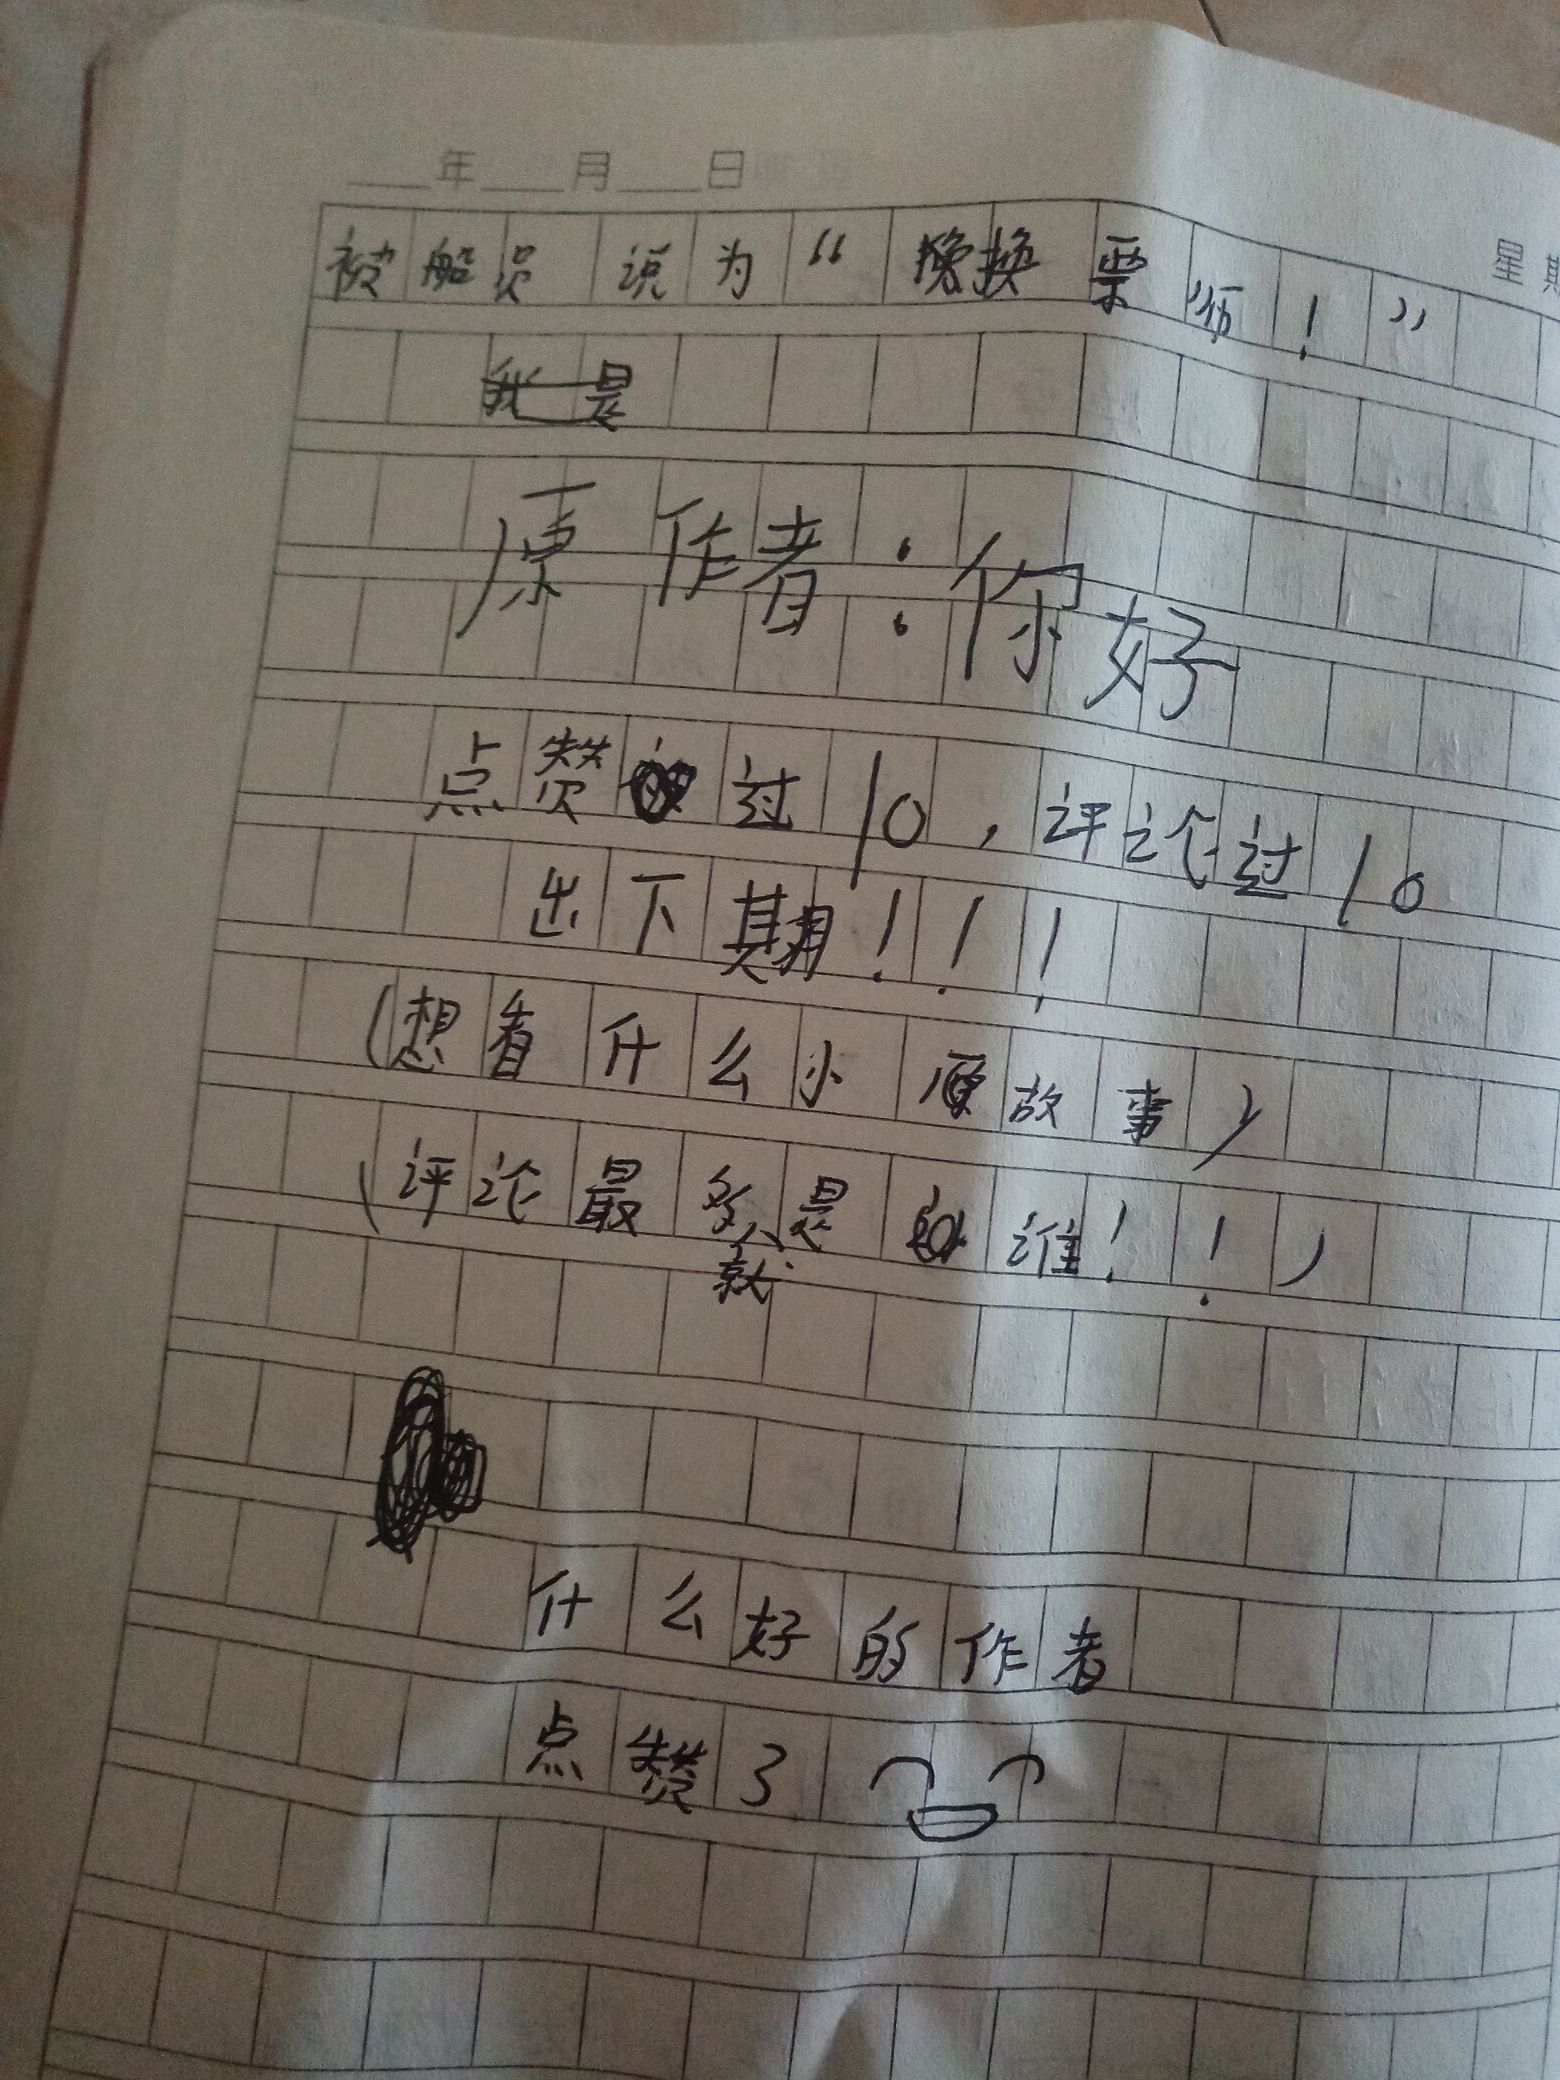 年 月 日
星期
被船员说为“换票师！”
我是
原作者：你好
点赞过10，评论过10
出下期！！！
（想看什么小故事）
（评论最多就是谁！！）
什么好的作者
点赞了